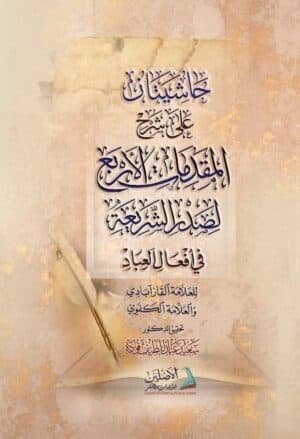 حاشيتان
على شرح
المقدمات الأربع
لصدر الشريعة
في أفعال العباد
للعلامة القازآبادي
والعلامة الكفوي
تحقيق الدكتور
سعيد عبد اللطيف فودة
الأصلين